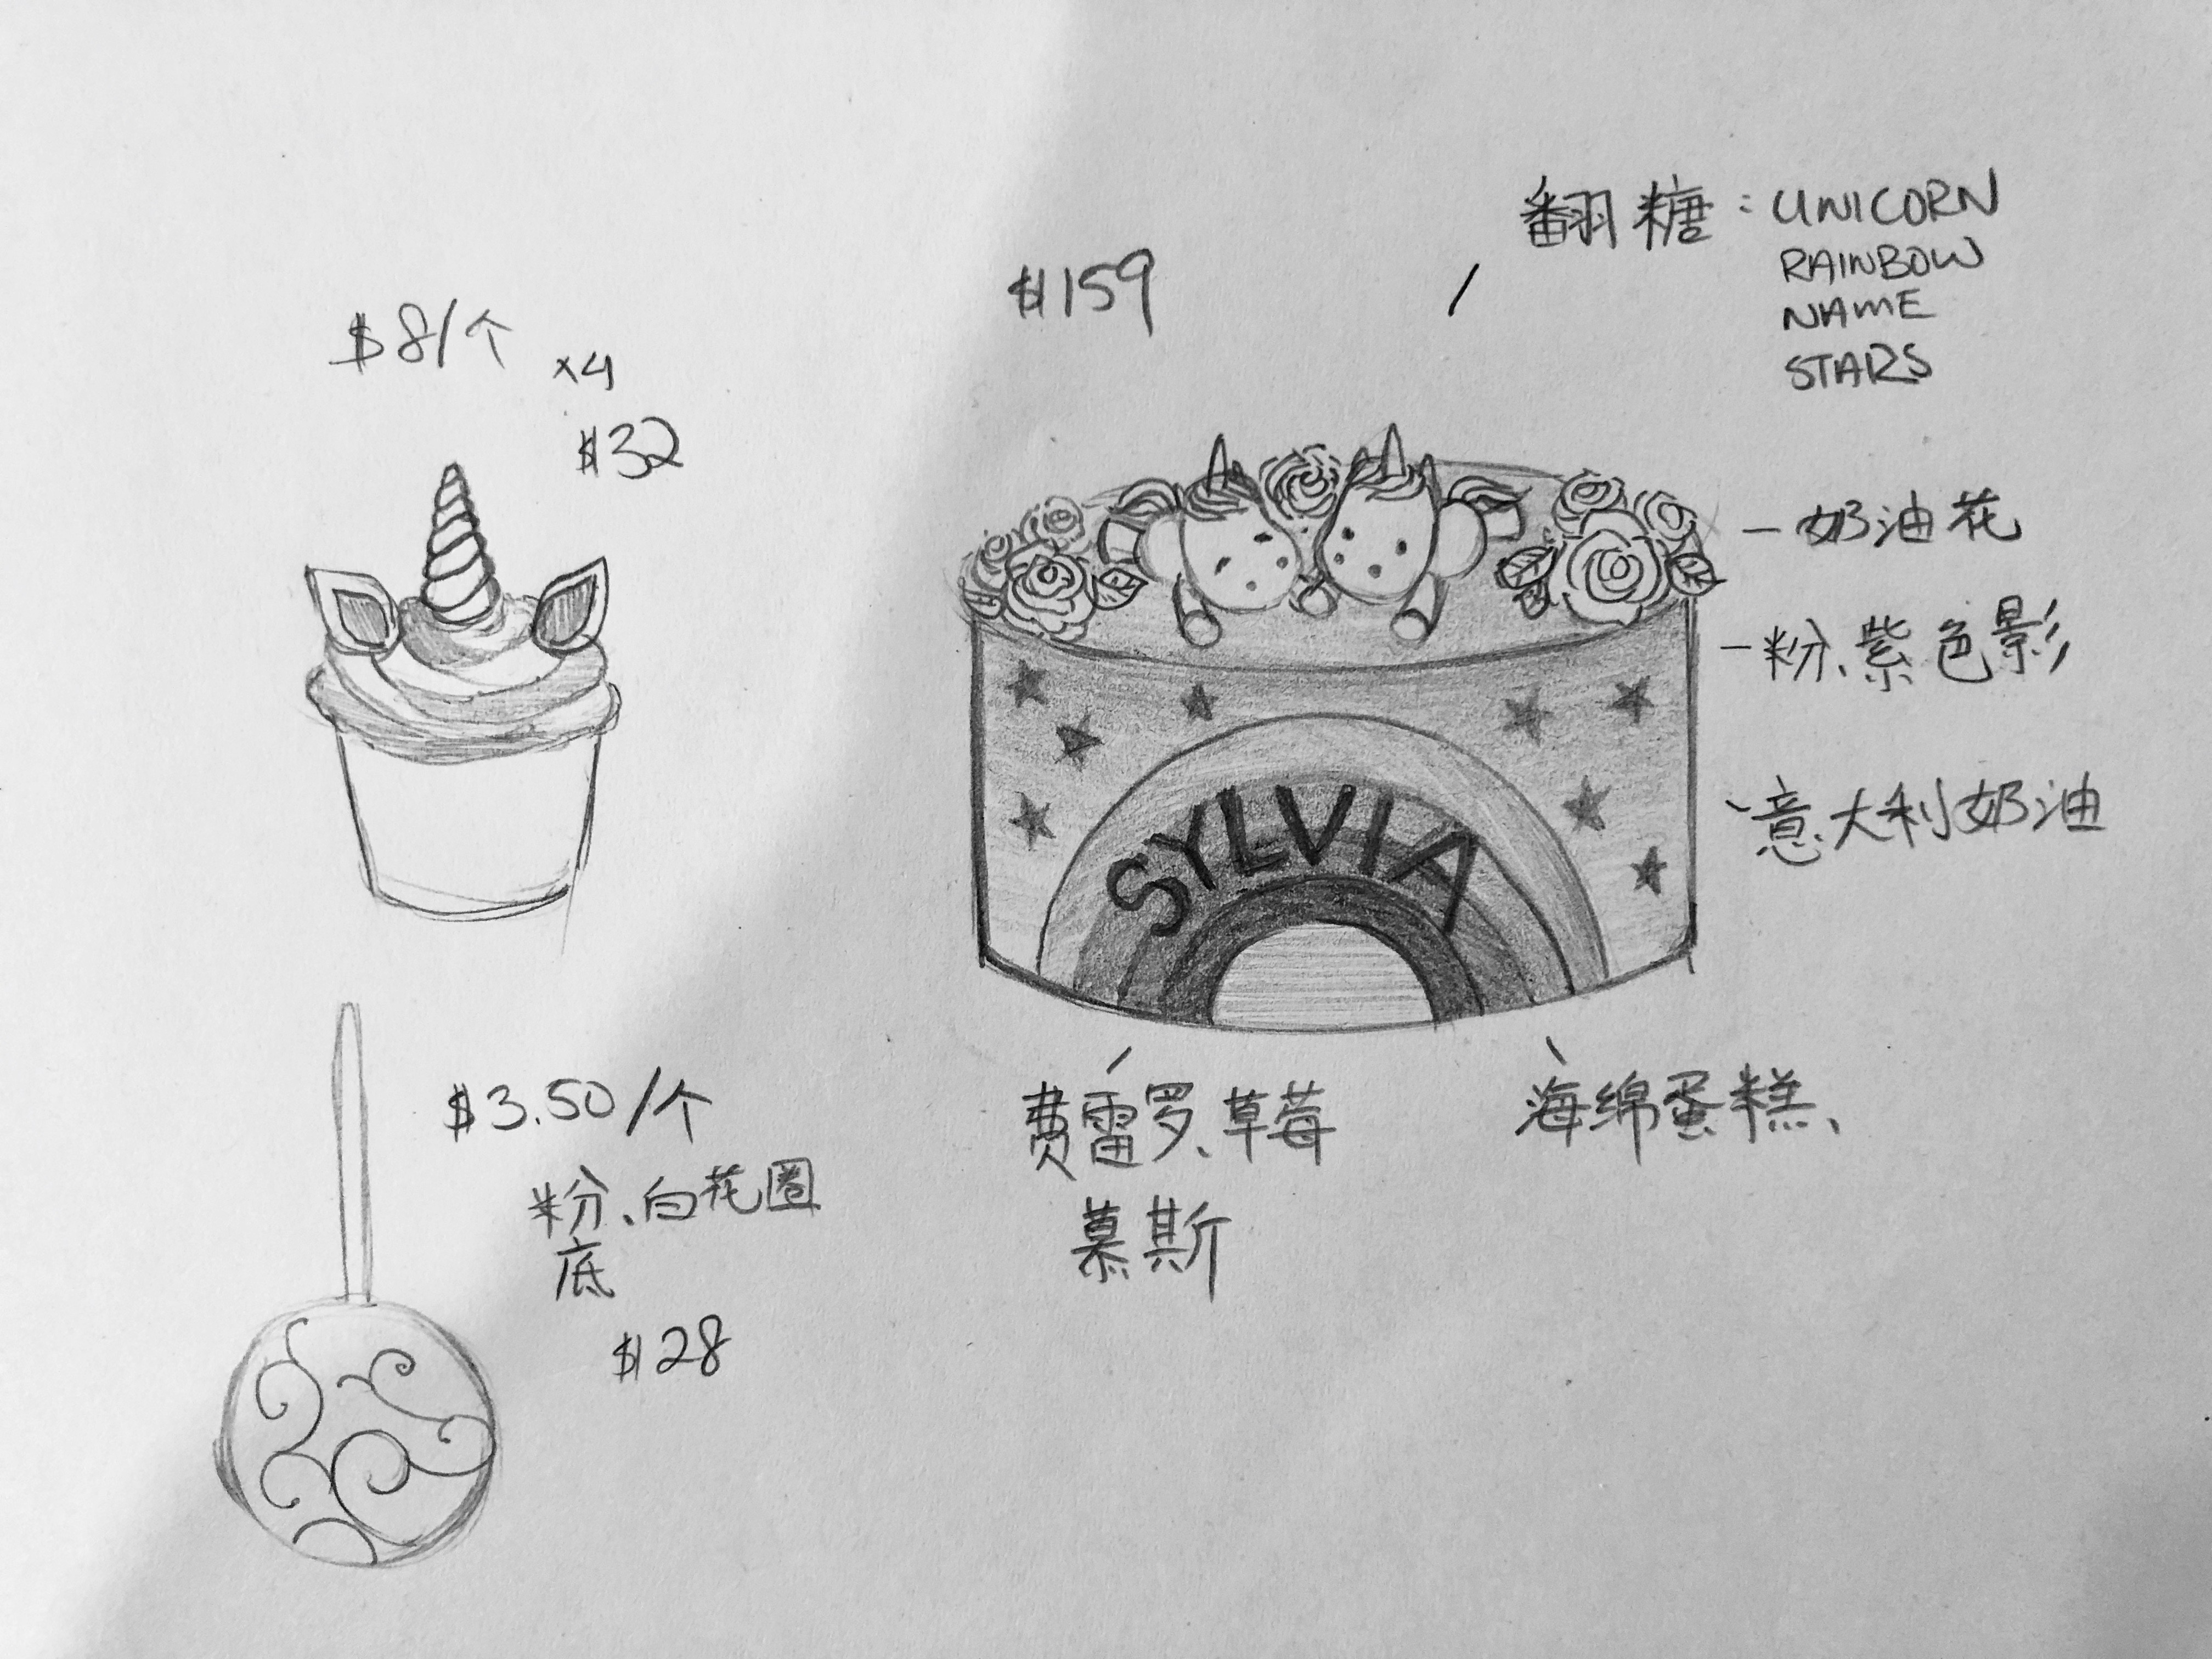 $8/个 ×4
$32
$3.50/个
粉、白花圈
底
$28
$159
翻糖：UNICORN
RAINBOW
NAME
STARS
奶油花
粉、紫色影
意大利奶油
SYLVIA
费雷罗、草莓
慕斯
海绵蛋糕、